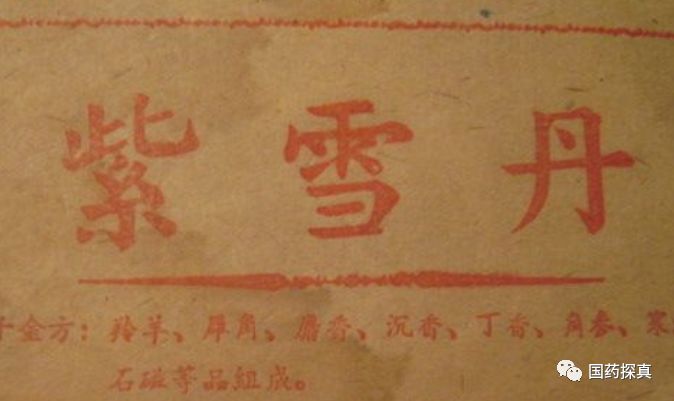 紫雪丹
千金方：羚羊、犀角、麝香、沉香、丁香、角参、寒
石磁等品組成。
国药探真